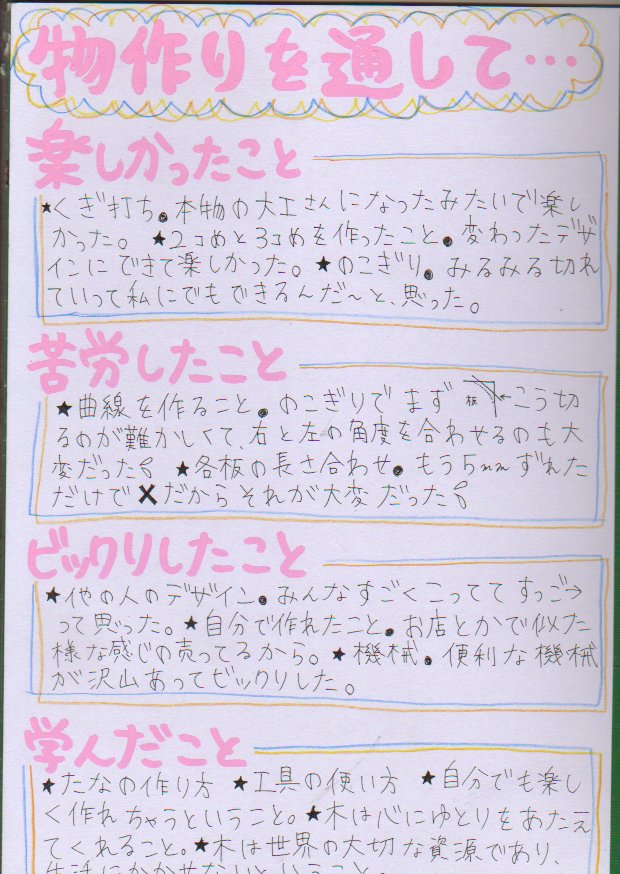 物作りを通して…
楽しかったこと
★くぎ打ち。本物の大工さんになったみたいで楽し
かった。 ★2コめと3コめを作ったこと。変わったデザ
インにできて楽しかった。★のこぎり。みるみる切れ
ていって私にでもできるんだ〜と、思った。
苦労したこと
★曲線を作ること。のこぎりでまず 板 ←こう切
るのが難かしくて、右と左の角度を合わせるのも大
変だった ★各板の長さ合わせ。もう5mmずれた
だけで✗だからそれが大変だった
ビックリしたこと
★他の人のデザイン。みんなすごくこっててすっご→
って思った。★自分で作れたこと。お店とかで似た
様な感じの売ってるから。★機械。便利な機械
が沢山あってビックリした。
学んだこと
★たなの作り方 ★工具の使い方 ★自分でも楽し
く作れちゃうということ。★木は心にゆとりをあたえ
てくれること。★木は世界の大切な資源であり、
生活にかかせないということ。